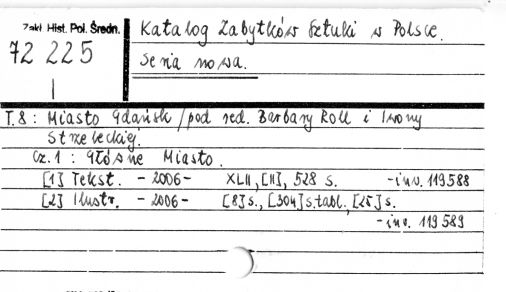 Zakł. Hist. Pol. Średn.
72 225
Katalog Zabytków Sztuki w Polsce.
Seria nowa.
T.8 : Miasto Gdańsk / pod red. Barbary Roll i Iwony
Strzeleckiej.
Cz.1 : Główne Miasto.
[1] Tekst. - 2006 - XLII, [II], 528 s. - inv. 119588
[2] Ilustr. - 2006 - [8] s., [304] s.tabl., [25] s.
- inv. 119589